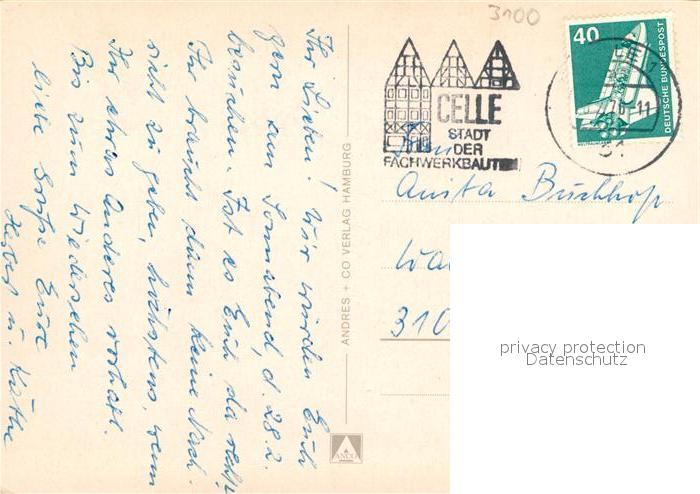 Ihr Lieben! Wir würden Euch
gern am Sonnabend, d. 28.2.
besuchen. Ist es Euch da recht?
Ihr braucht dann keine Nach-
richt zu geben, höchstens, wenn
Ihr etwas Anderes vorhabt.
Bis zum Wiedersehen
liebe Grüße Eure
u. Käthe
ANDRES + CO VERLAG HAMBURG
ANCO
3100
CELLE
STADT
DER
FACHWERKBAUTEN
40
DEUTSCHE BUNDESPOST
Anita Buchhop
310
privacy protection
Datenschutz